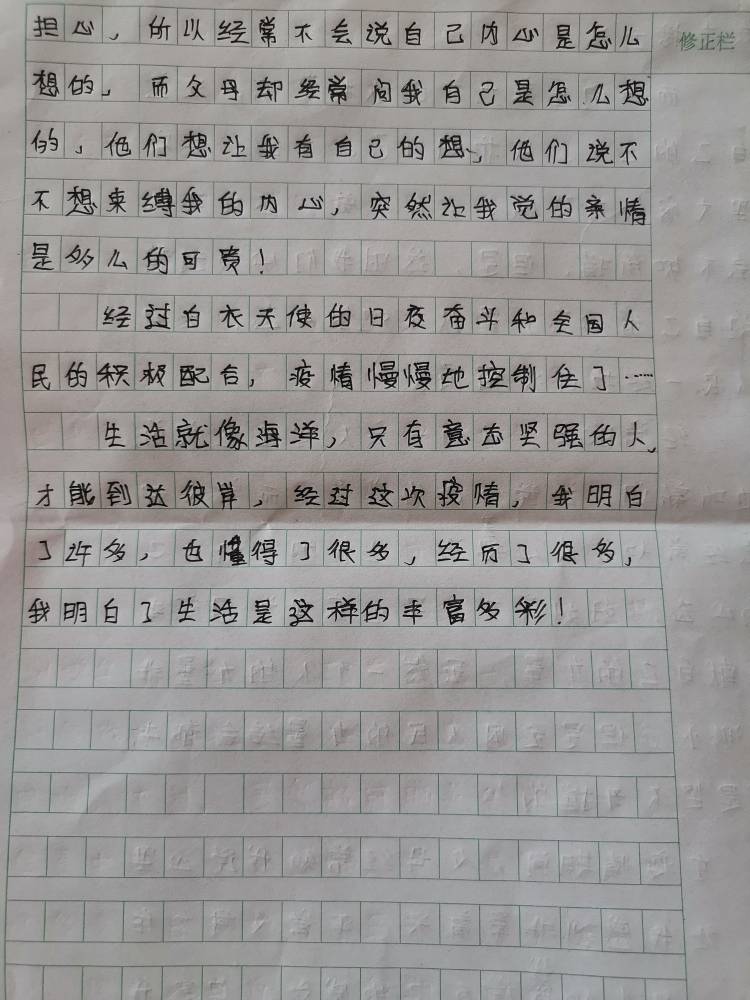 担心，所以经常不会说自己内心是怎么
修正栏
想的，而父母却经常问我自己是怎么想
的，他们想让我有自己的想，他们说不
不想束缚我的内心，突然让我觉的亲情
是多么的可贵！
经过白衣天使的日夜奋斗和全国人
民的积极配合，疫情慢慢地控制住了……
生活就像海洋，只有意志坚强的人，
才能到达彼岸，经过这次疫情，我明白
了许多，也懂得了很多，经历了很多，
我明白了生活是这样的丰富多彩！